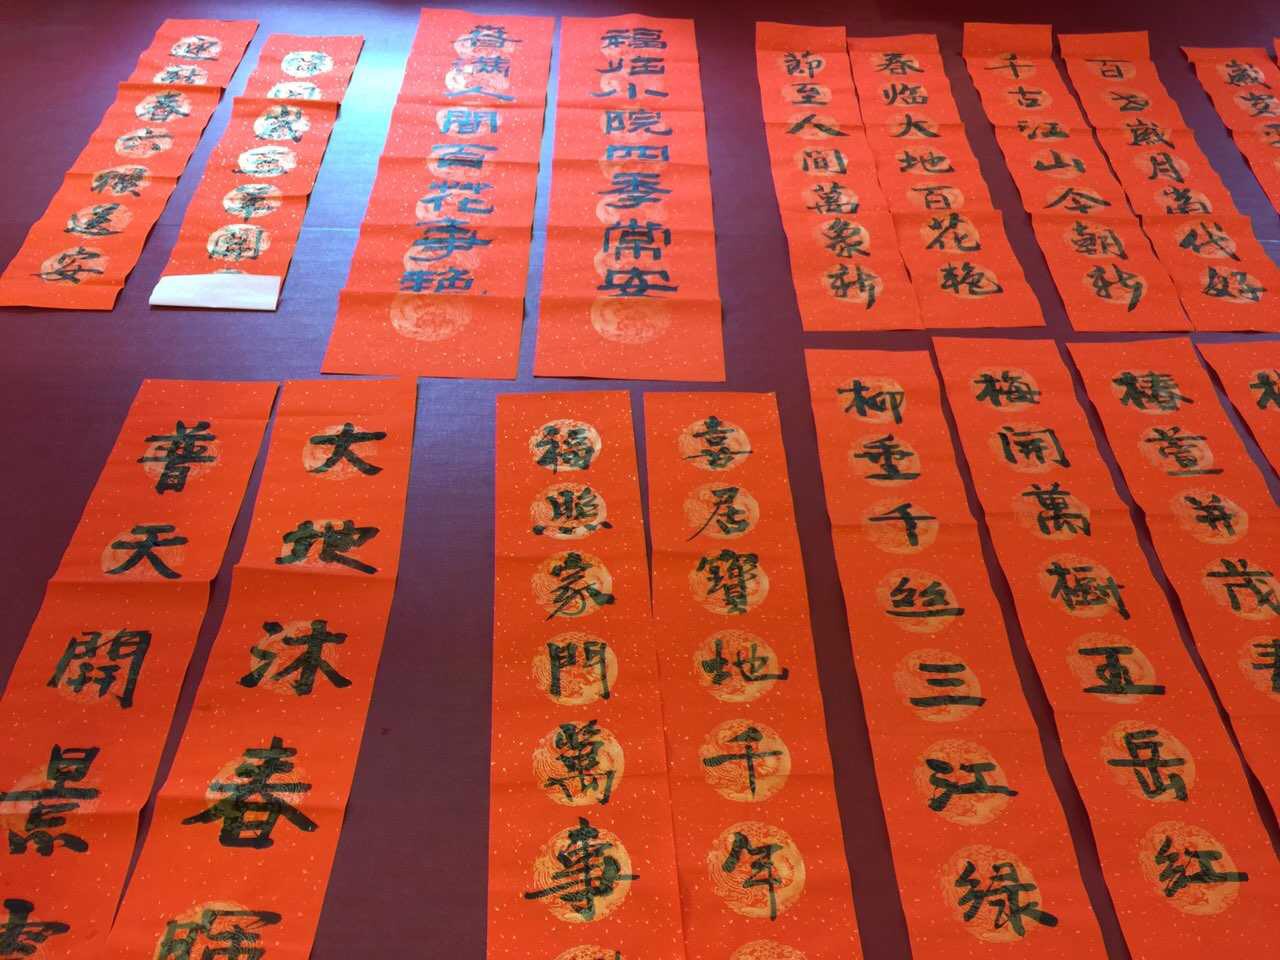 迎新春六順送安
春滿人間百花爭艳
福临小院四季常安
節至人間萬象新
春临大地百花艳
千古江山今朝新
百年歲月當代好
普天開景
大地沐春暉
福照家門萬事
喜居寶地千年
柳垂千丝三江绿
梅開萬樹五岳红
椿萱并茂